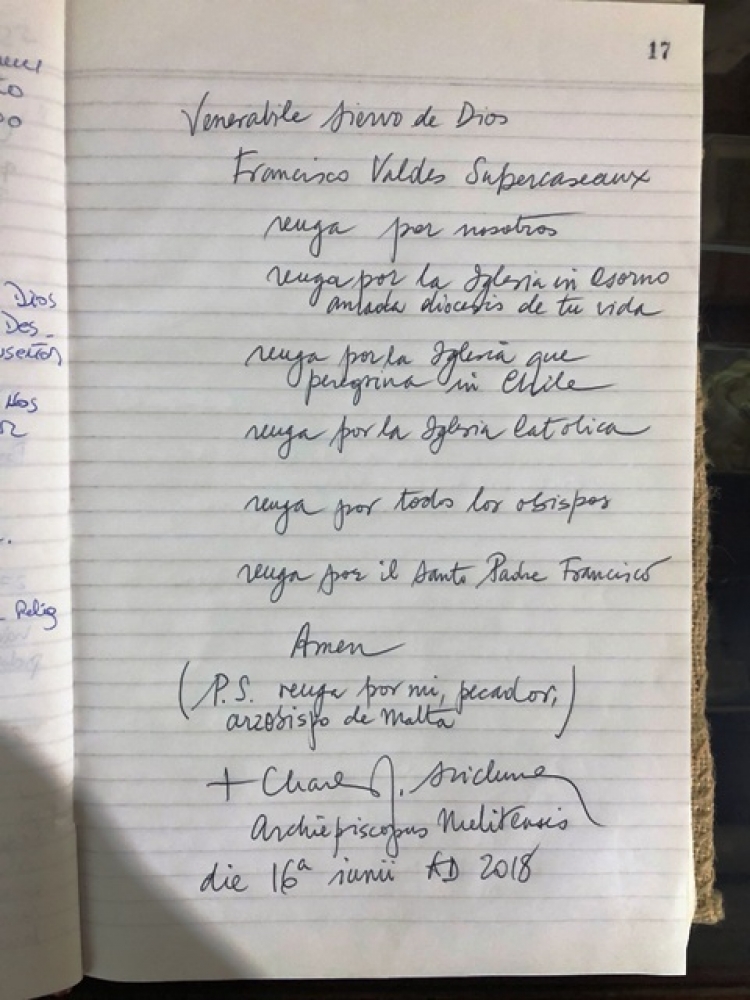 17
Venerabile siervo de Dios
Francisco Valdes Subercaseaux
reuga por nosotros
reuga por la Iglesia in Osorno
amada diocesis de tu vida
reuga por la Iglesia que
peregrina in Chile
reuga por la Iglesia Catolica
reuga por todos los obispos
reuga por il Santo Padre Francisco
Amen
(P.S. reuga por mi, pecador,
arzobispo de Malta)
+ Charles J. Scicluna
Archiepiscopus Melitensis
die 16ª iunii AD 2018
Dios
Des_
Relig